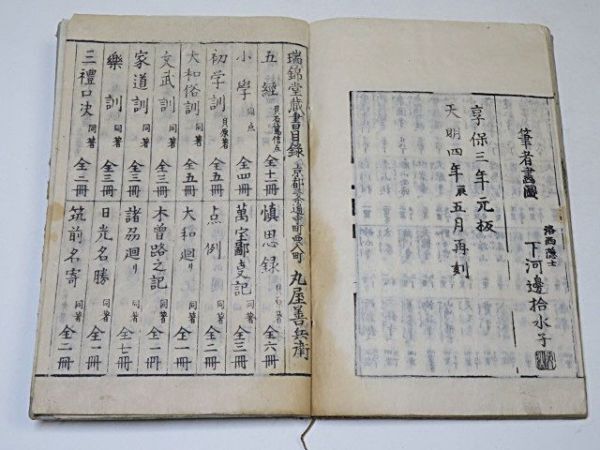 筆者畫圖
洛西隱士
下河邊拾水子
享保三年元板
天明四年辰五月再刻
瑞錦堂藏書目錄
丸屋善兵衛
五經 貝原篤信点 全十一冊
小學 同点 全四冊
初学訓 貝原著 全五冊
大和俗訓 同著 全五冊
文武訓 同著 全三冊
家道訓 同著 全三冊
樂訓 同著 全三冊
三禮口决 同著 全二冊
慎思録 全六冊
萬宝鄙事記 同著 全三冊
点例 同著 全二冊
大和廻り 同著 全一冊
木曽路之記 同著 全二冊
諸刕廻り 同著 全七冊
日光名勝 同著 全一冊
筑前名寄 同著 全二冊